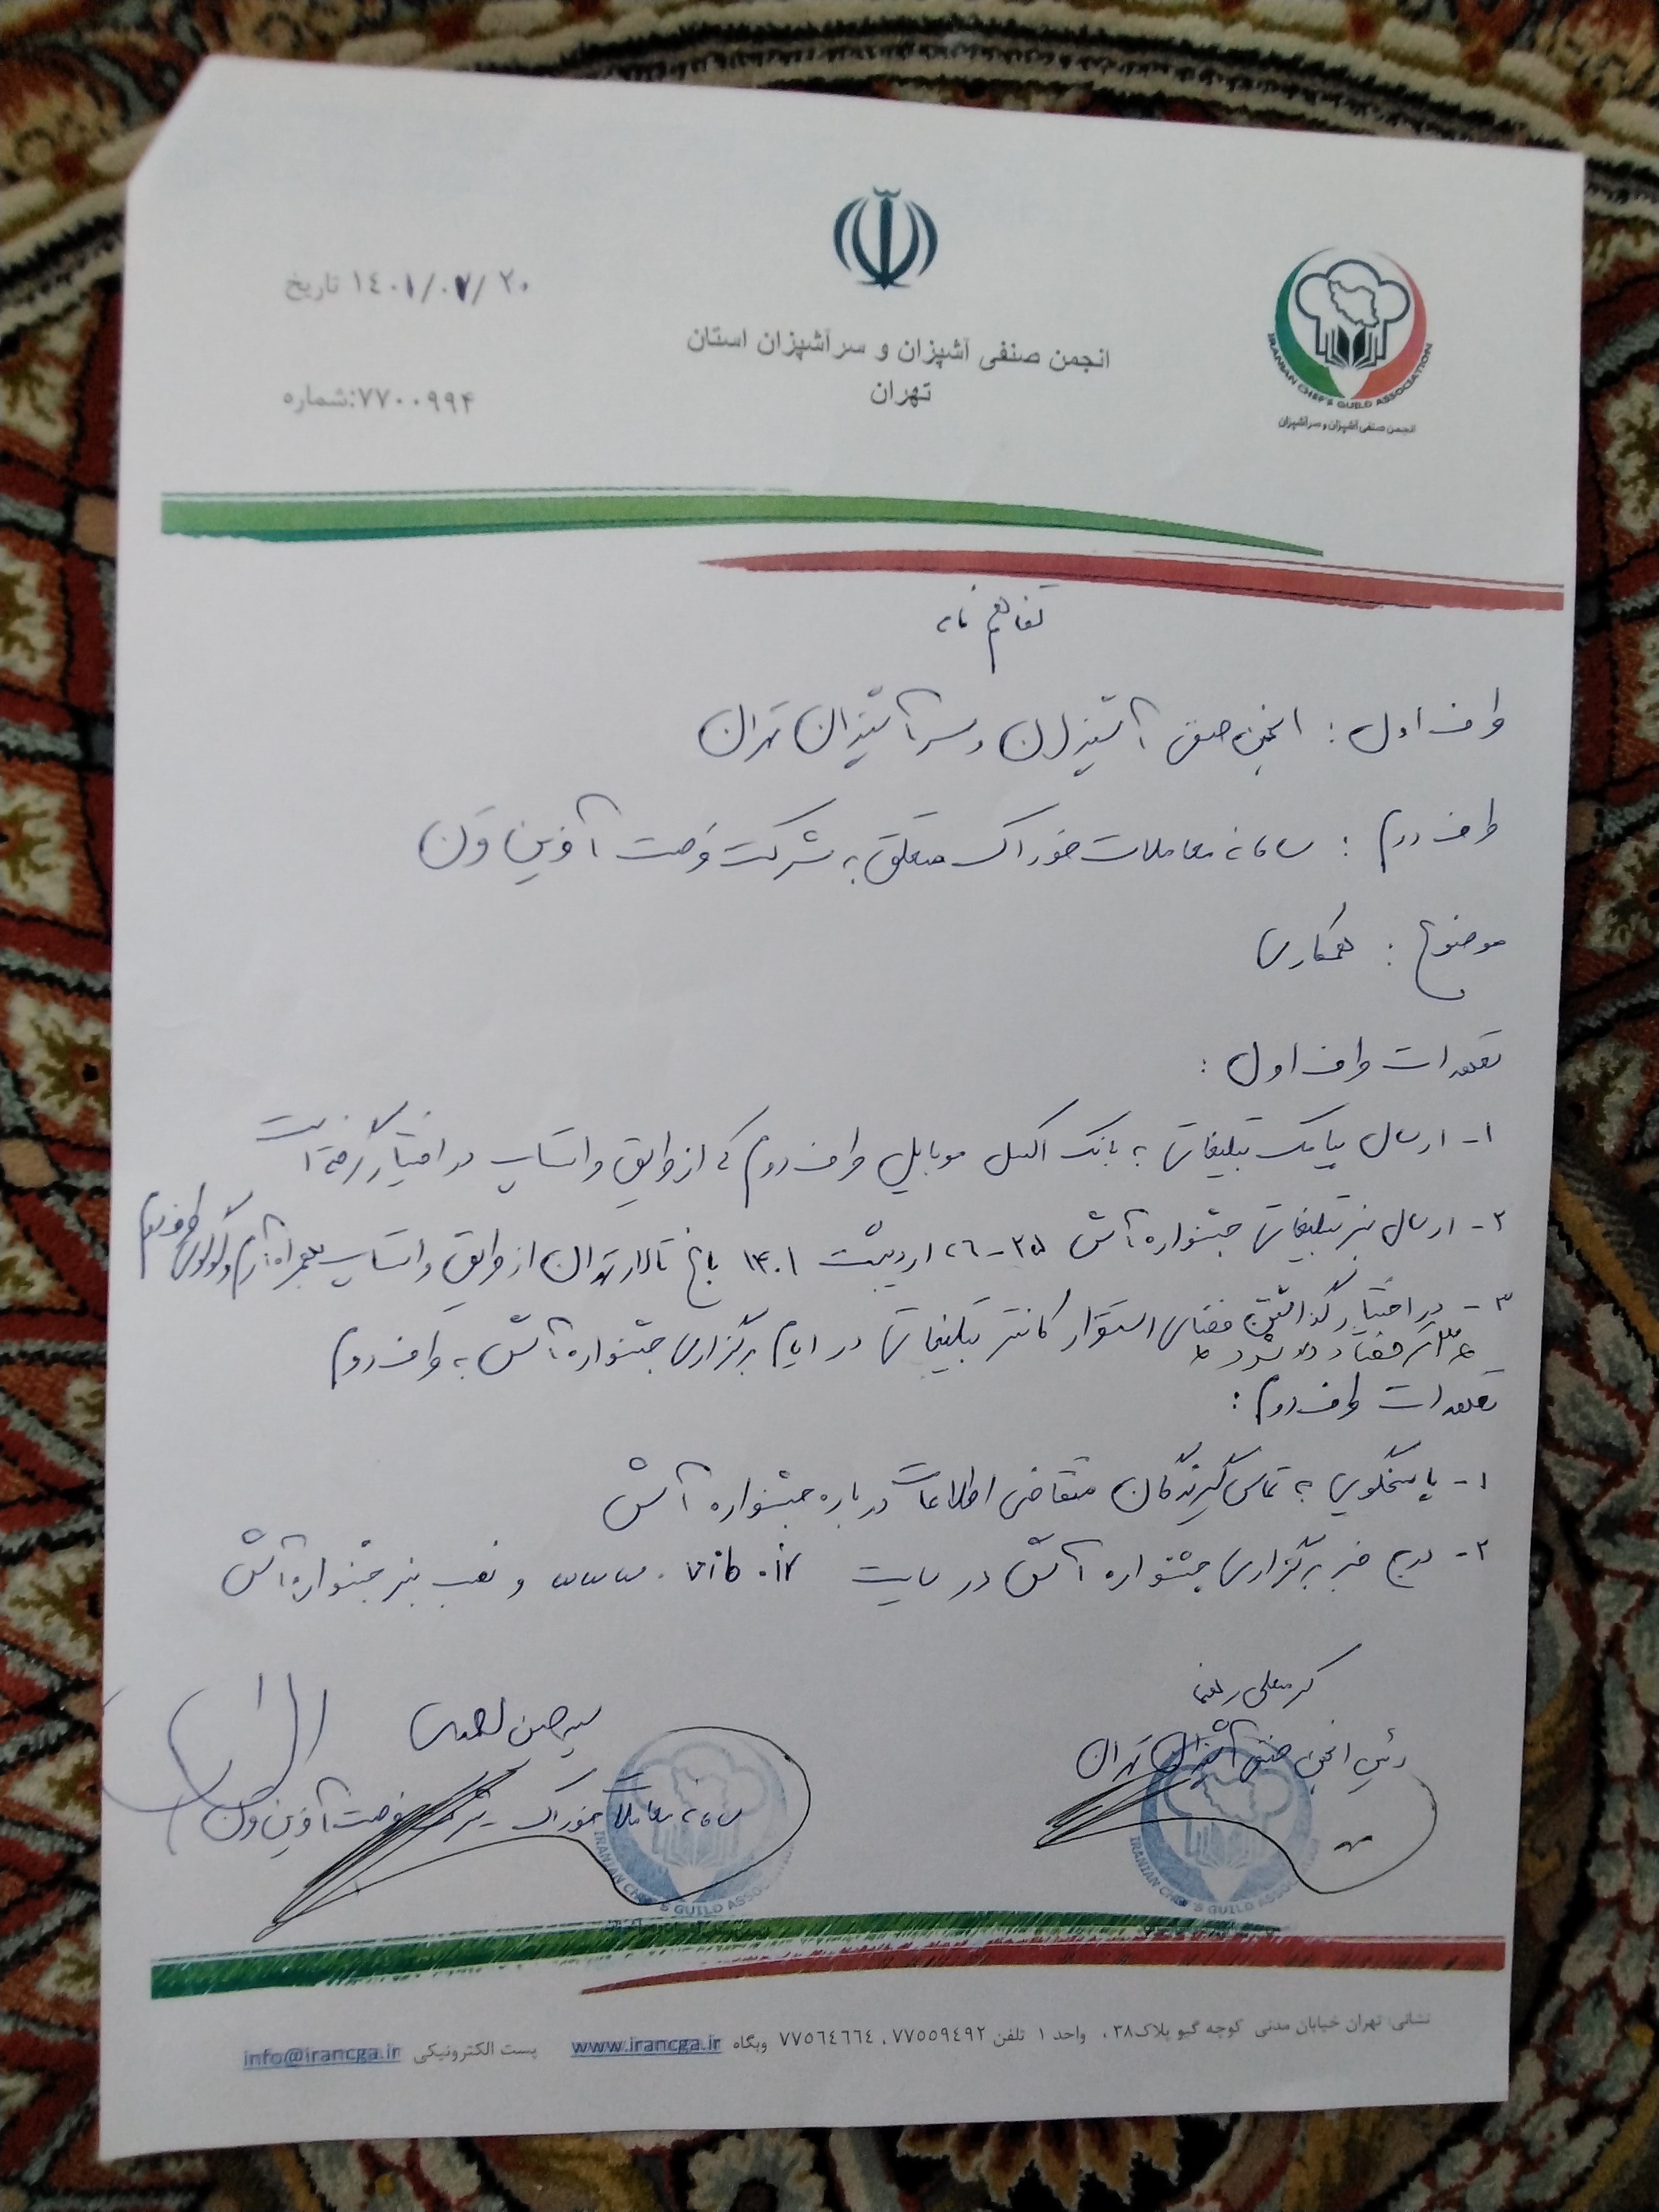 تاریخ ۱٤۰۱/۰۷/۲۰
شماره:۷۷۰۰۹۹۴
انجمن صنفی آشپزان و سرآشپزان استان
تهران
IRANIAN CHEF'S GUILD ASSOCIATION
انجمن صنفی آشپزان و سرآشپزان
تفاهم نامه
طرف اول : انجمن صنفی آشپزان و سرآشپزان تهران
طرف دوم : سامانه معاملات خوراک متعلق به شرکت فرصت آفرین ون
موضوع : همکاری
تعهدات طرف اول :
۱- ارسال پیامک تبلیغاتی به بانک اکسل موبایل طرف دوم که از طریق واتساپ در اختیار گرفته است
۲- ارسال بنر تبلیغاتی جشنواره آش ۲۵-۲۶ اردیبهشت ۱۴۰۱ باغ تالار تهران از طریق واتساپ بهمراه آرم و لوگوی طرف دوم
۳- در اختیار گذاشتن فضای استقرار کانتر تبلیغاتی در ایام برگزاری جشنواره آش به طرف دوم
تعهدات طرف دوم :
۱- پاسخگویی به تماس گیرندگان متقاضی اطلاعات درباره جشنواره آش
۲- درج خبر برگزاری جشنواره آش در سایت www.vib.ir و نصب بنر جشنواره آش
کرمعلی رهنما
رئیس انجمن صنفی آشپزان تهران
سامانه معاملات خوراک شرکت فرصت آفرین ون
IRANIAN CHEF'S GUILD ASSOC
IRANIAN CHEF'S GUILD ASSOC
نشانی: تهران خیابان مدنی کوچه گیو پلاک۳۸ ، واحد ۱ تلفن ۷۷٥٥۹٤۹۲ ، ۷۷٥٦٤٦٦٤ وبگاه www.irancga.ir پست الکترونیکی info@irancga.ir